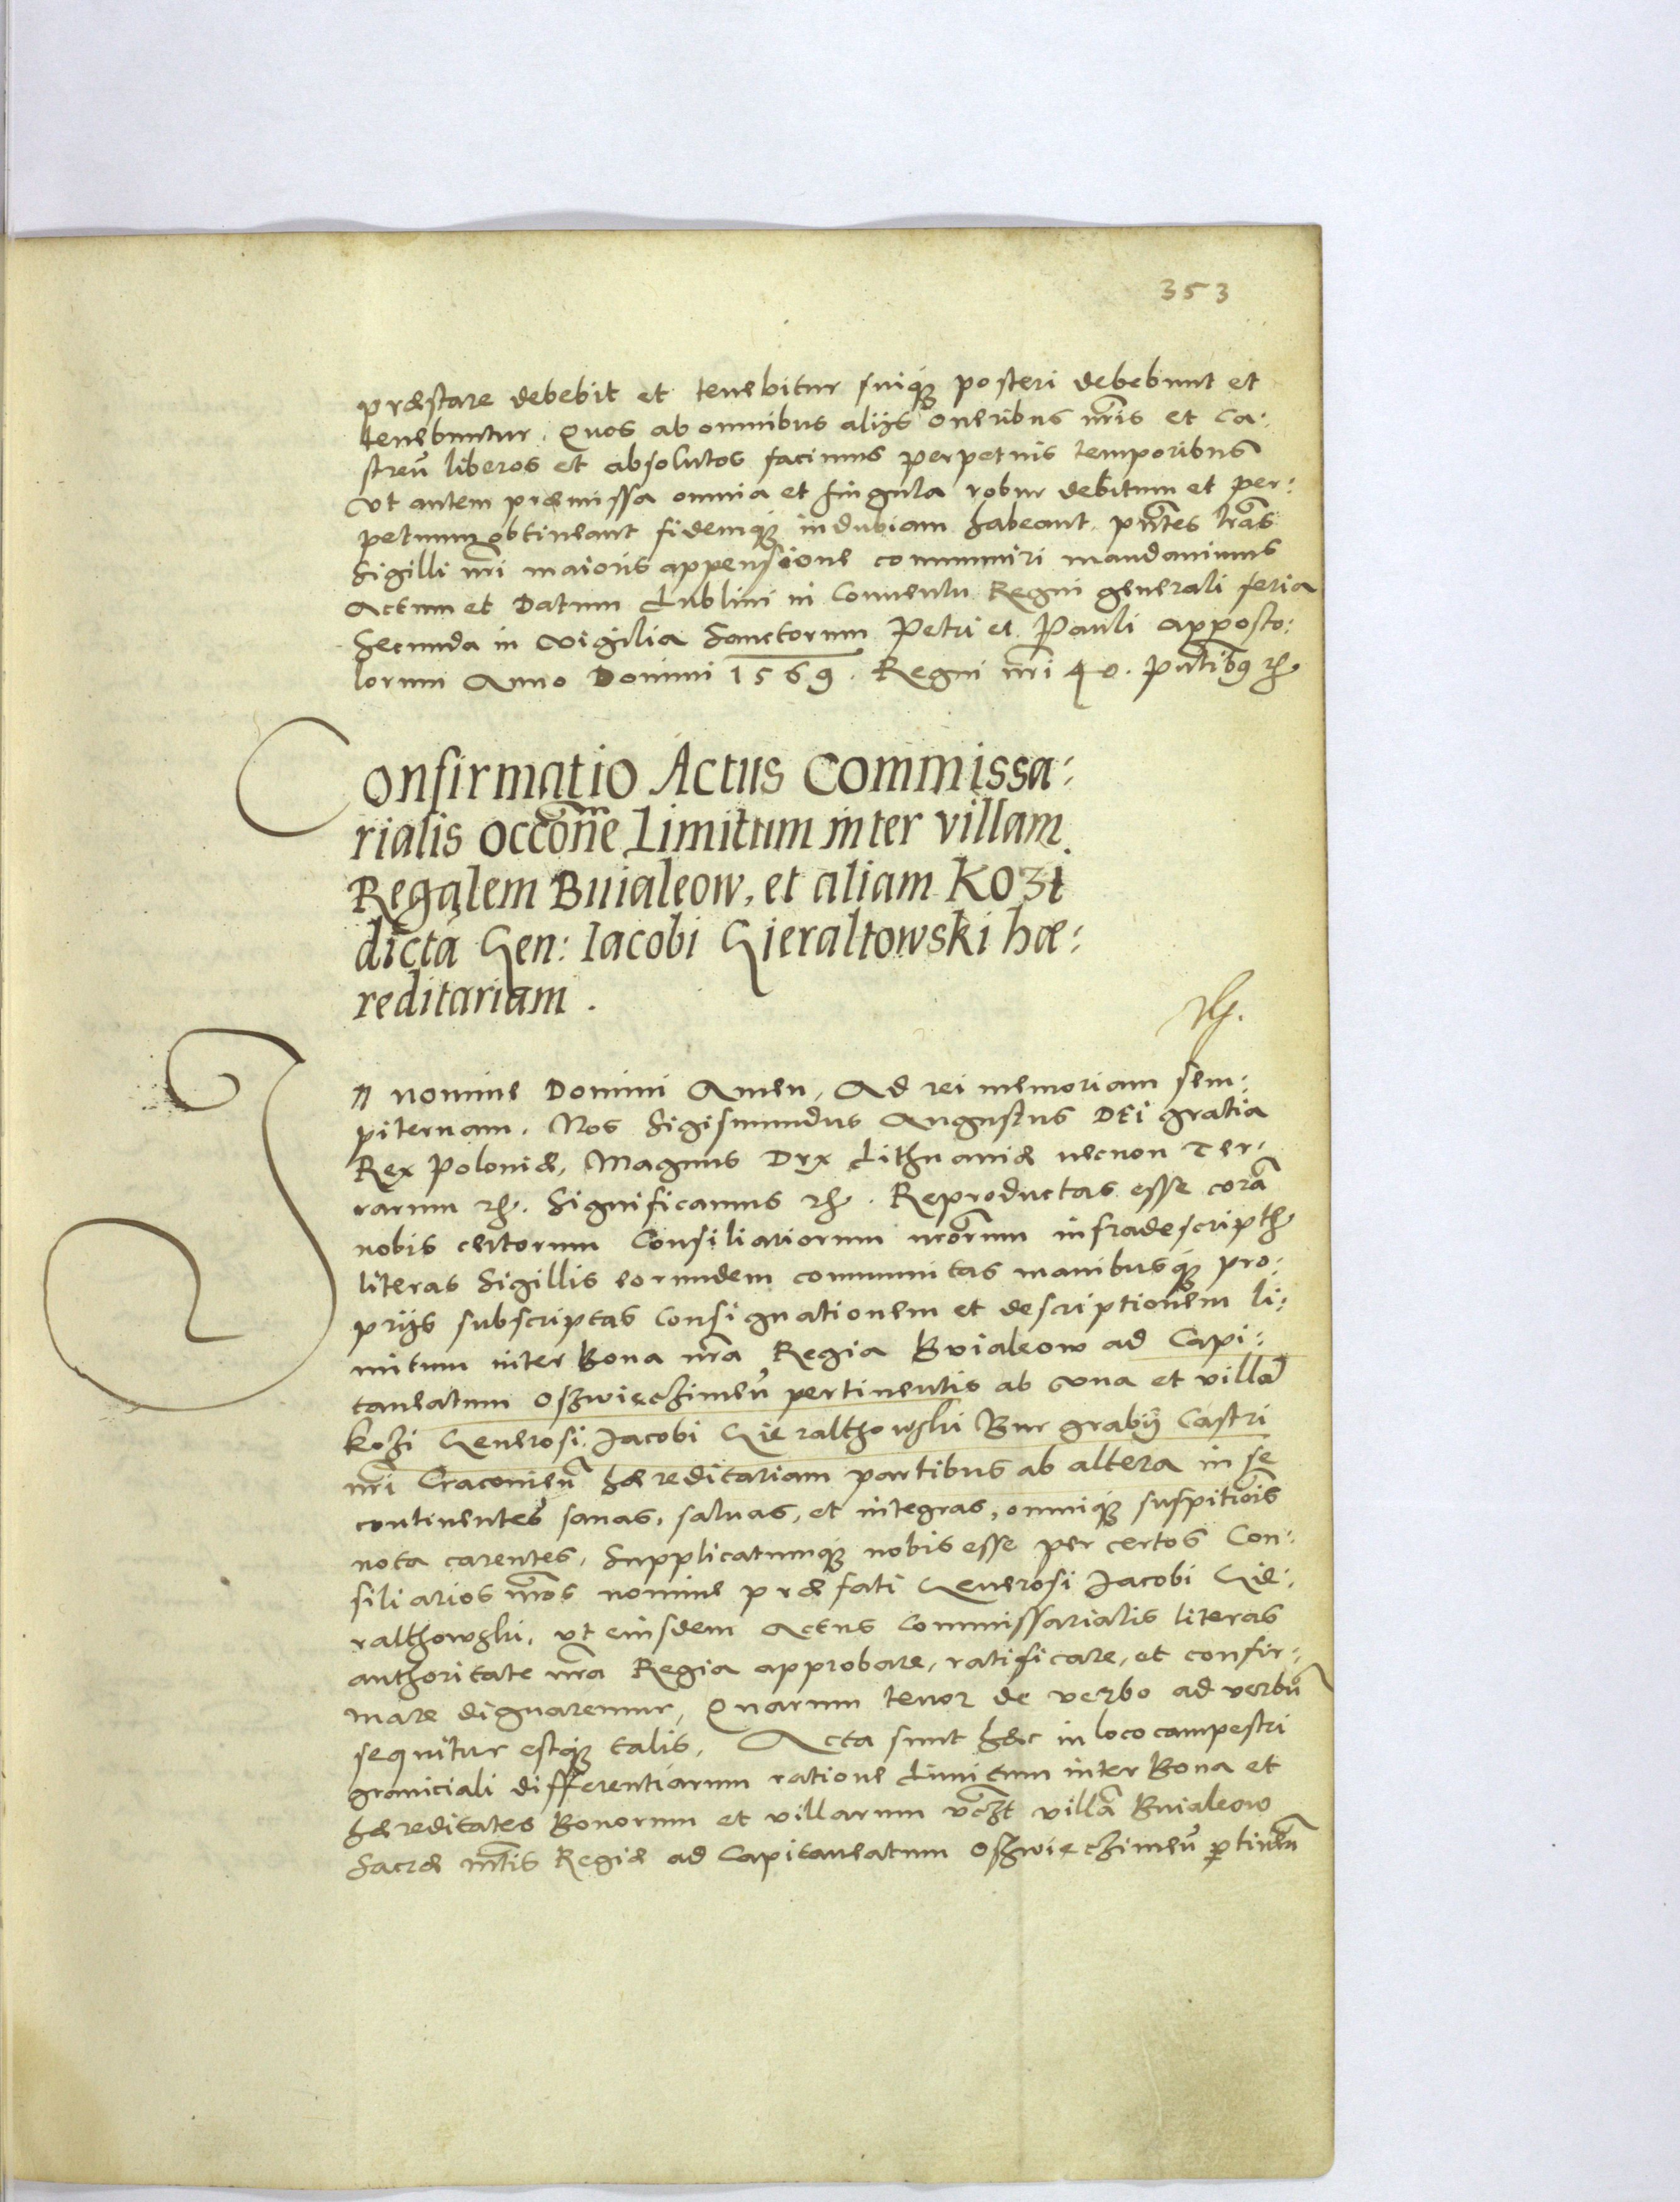 353
præstare debebit et tenebitur suiq₃ posteri debebunt et
tenebuntur. Quos ab omnibus alijs oneribus nr̃is et Ca:
streñ liberos et absolutos facimus perpetuis temporibus
Ut autem præmissa omnia et singula robur debitum et per:
petuum obtineant fidemq₃ indubiam habeant. pñtes lr̃as
Sigilli nr̃i maioris appensione communiri mandauimus
Actum et Datum Lublini in Conuentu Regni generali feria
Secunda in vigilia Sanctorum Petri et Pauli apposto:
lorum Anno Domini 1569. Regni nr̃i 40. pñtib9 ꝛc̃
Confirmatio Actus Commissa:
rialis occõne Limitum inter villam
Regalem Buialeow, et aliam Kozi
dictã Gen: Iacobi Gieraltowski hæ:
reditariam.
In nomine Domini Amen, Ad rei memoriam sem:
piternam. Nos Sigismundus Augustus DEi gratia
Rex Poloniæ, Magnus Dux Lithuaniæ necnon Ter:
rarum ꝛc̃. Significamus ꝛc̃. Reproductas esse corã
nobis certorum Consiliariorum nr̃orum infradescripth
literas Sigillis eorundem communitas manibusq₃ pro:
prijs subscriptas Consignationem et descriptionem li:
mitum inter Bona nr̃a Regia Buialeow ad Capi:
taneatum Oszwieczimeñ pertinentis ab una et villã
Kozi Generosi Jacobi Gieralthowski Burgrabij Castri
nr̃i Cracouieñ hæreditariam partibus ab altera in se
continentes sanas, saluas, et integras, omniq₃ suspitiõis
nota carentes. Supplicatumq₃ nobis esse per certos Con:
siliarios nr̃os nomine præfati Generosi Jacobi Gie:
ralthowski, ut eiusdem Actus Commissarialis literas
authoritate nr̃a Regia approbare, ratificare, et confir:
mare dignaremur, Quarum tenor de verbo ad verbũ
sequitur estq₃ talis. Acta sunt hæc in loco campestri
graniciali differentiarum ratione Limitum inter Bona et
hæreditates Bonorum et villarum vcz̃t villã Buialeow
Sacræ mt̃is Regiæ ad Capitaneatum Oszwieczimeñ ptineñ